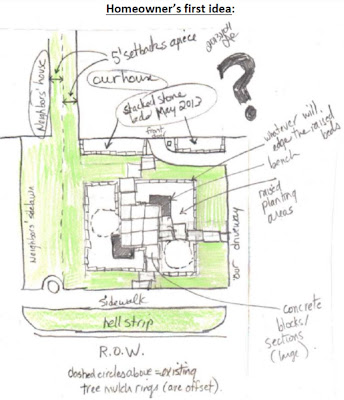 Homeowner's first idea:
5' setbacks apiece
Neighbors' house
our house
Stacked stone
beds May 2013
front
door
whatever will
edge the raised
beds
bench
raised
planting
areas
Neighbors' setback
our driveway
sidewalk
hell strip
concrete
blocks/
sections
(large).
R.O.W.
dashed circles above = existing
tree mulch rings (are offset).